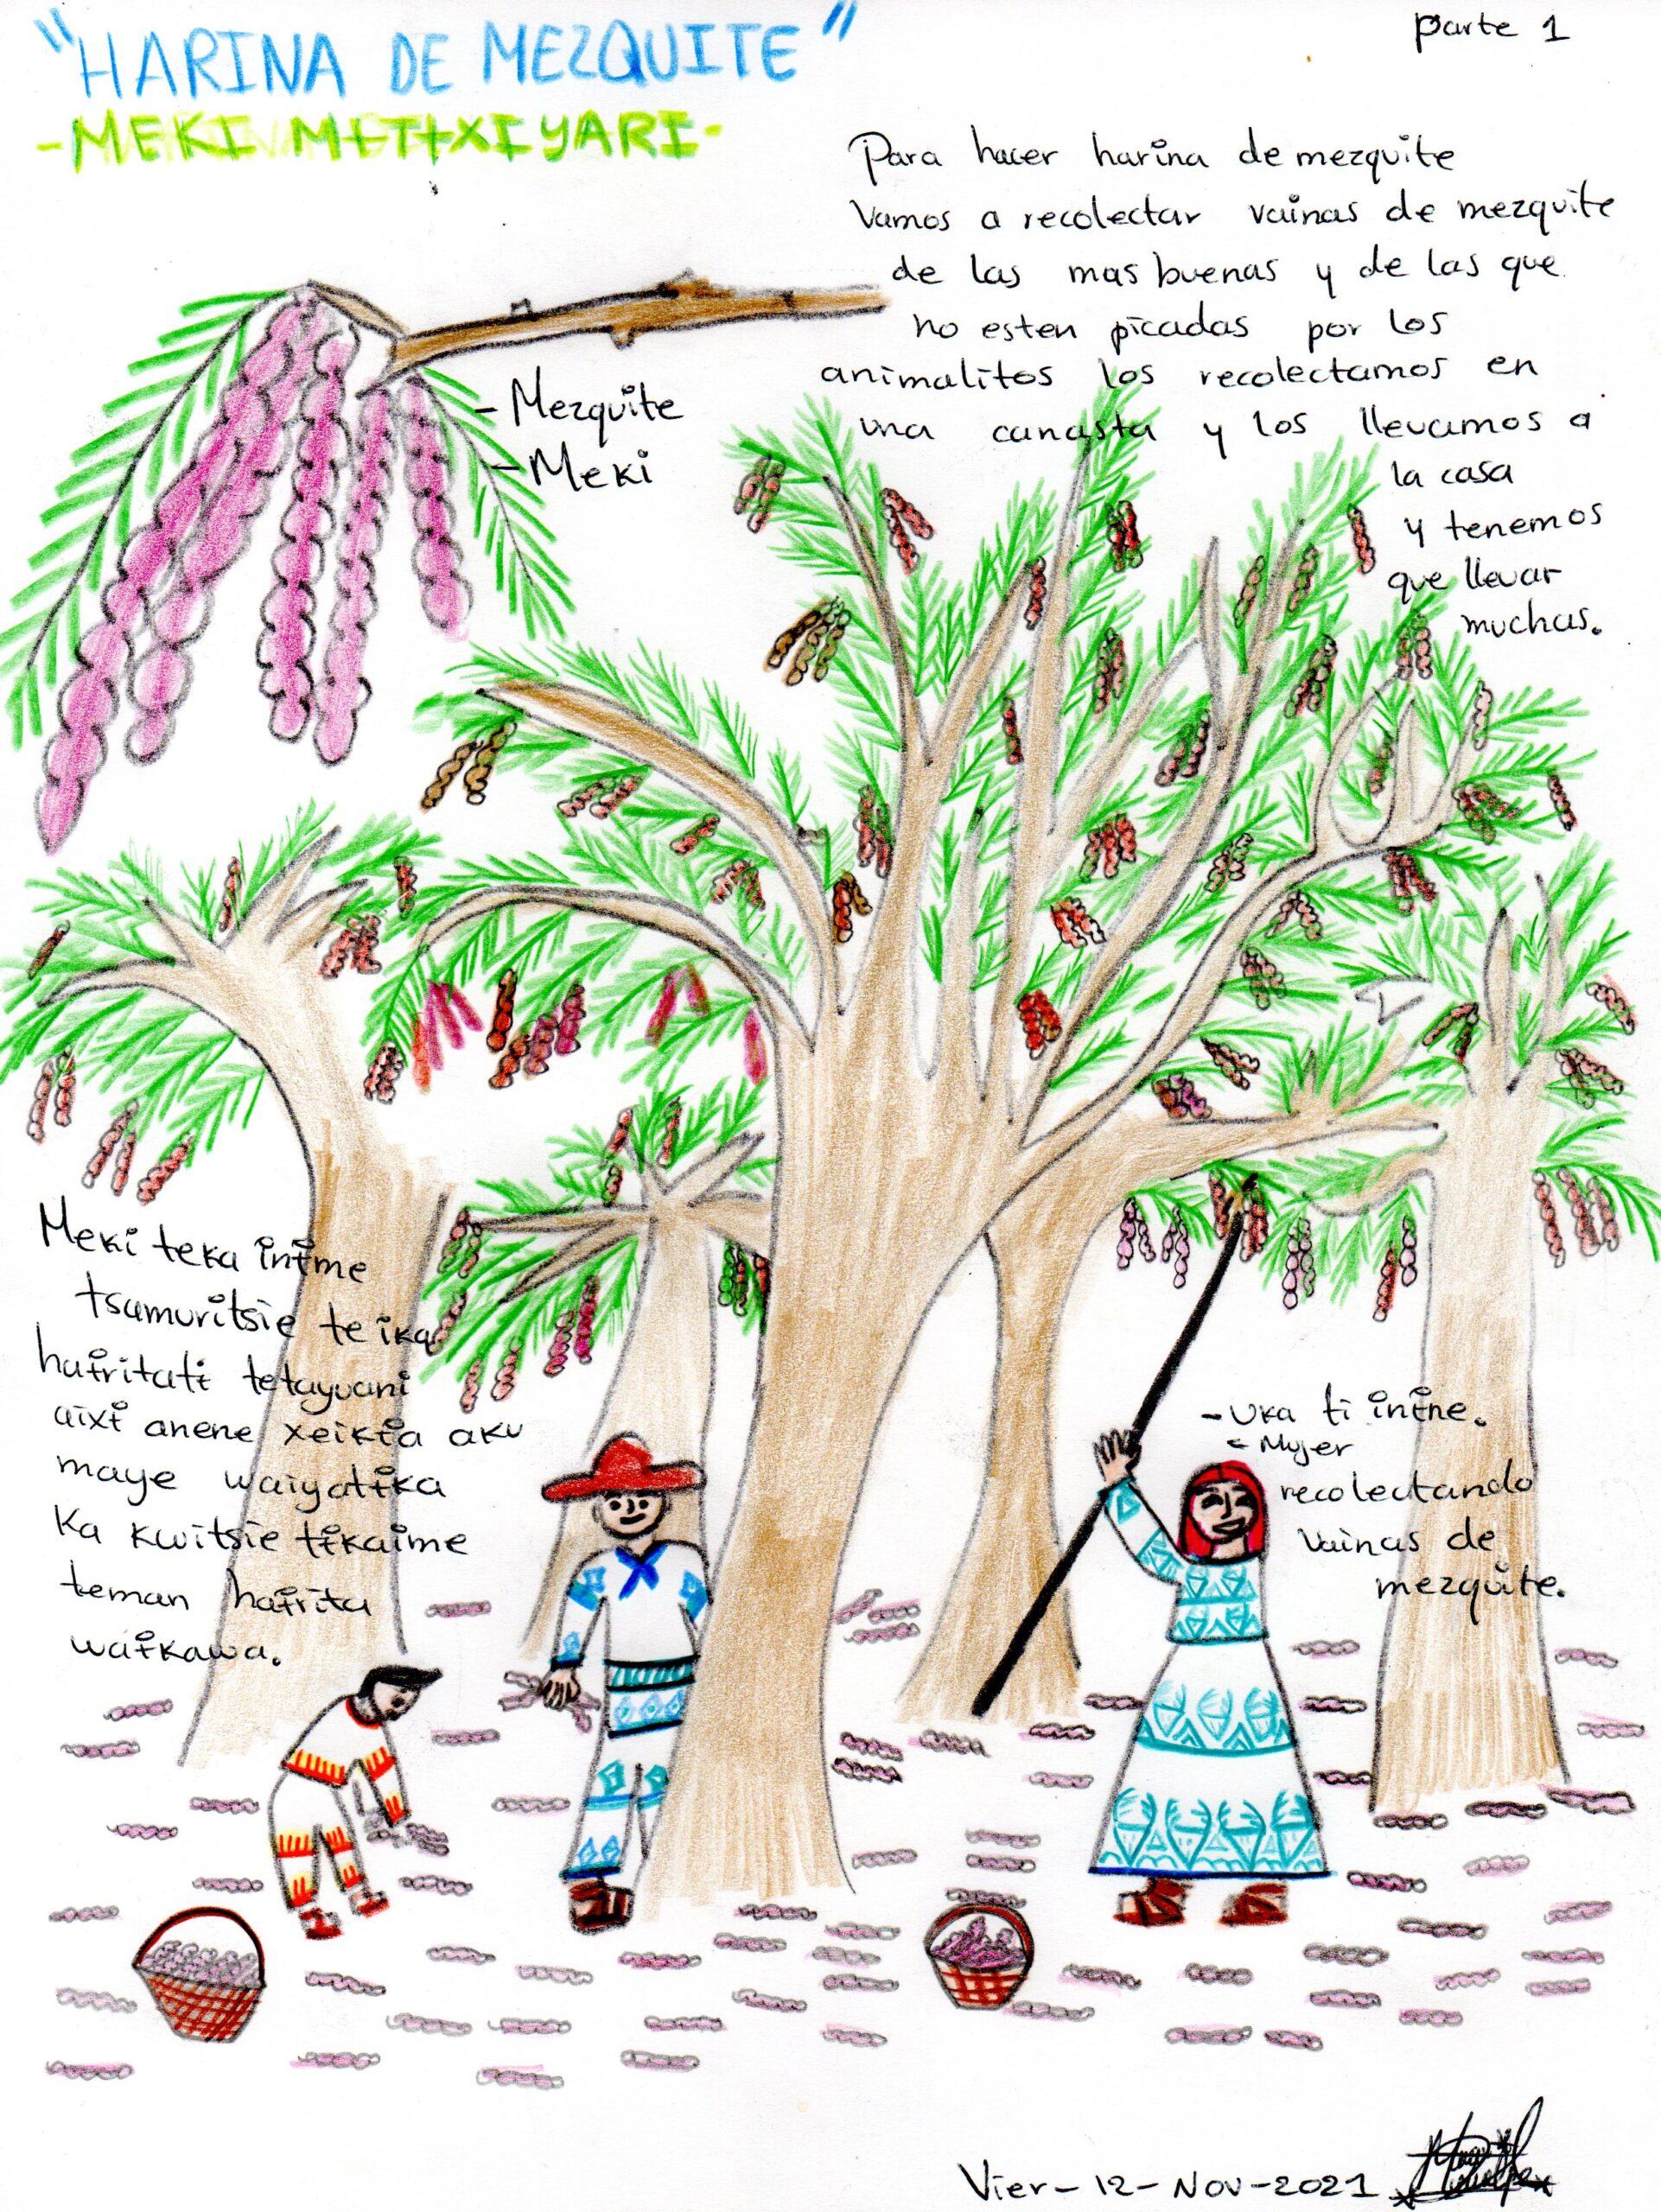 "HARINA DE MEZQUITE"
-MEKI MɨTɨXIYARI-
parte 1
Para hacer harina de mezquite
vamos a recolectar vainas de mezquite
de las mas buenas y de las que
no esten picadas por los
animalitos los recolectamos en
una canasta y los llevamos a
la casa
y tenemos
que llevar
muchas.
- Mezquite
- Meki
Meki teka inɨme
tsamuritsie te ika
haɨritatɨ tetayuani
aixɨ anene xeikɨa aku
maye waiyatɨka
Ka kwitsie tɨkaime
teman haɨrita
waɨkawa.
- Uka ti inɨne.
- Mujer
recolectando
vainas de
mezquite.
Vier-12-Nov-2021